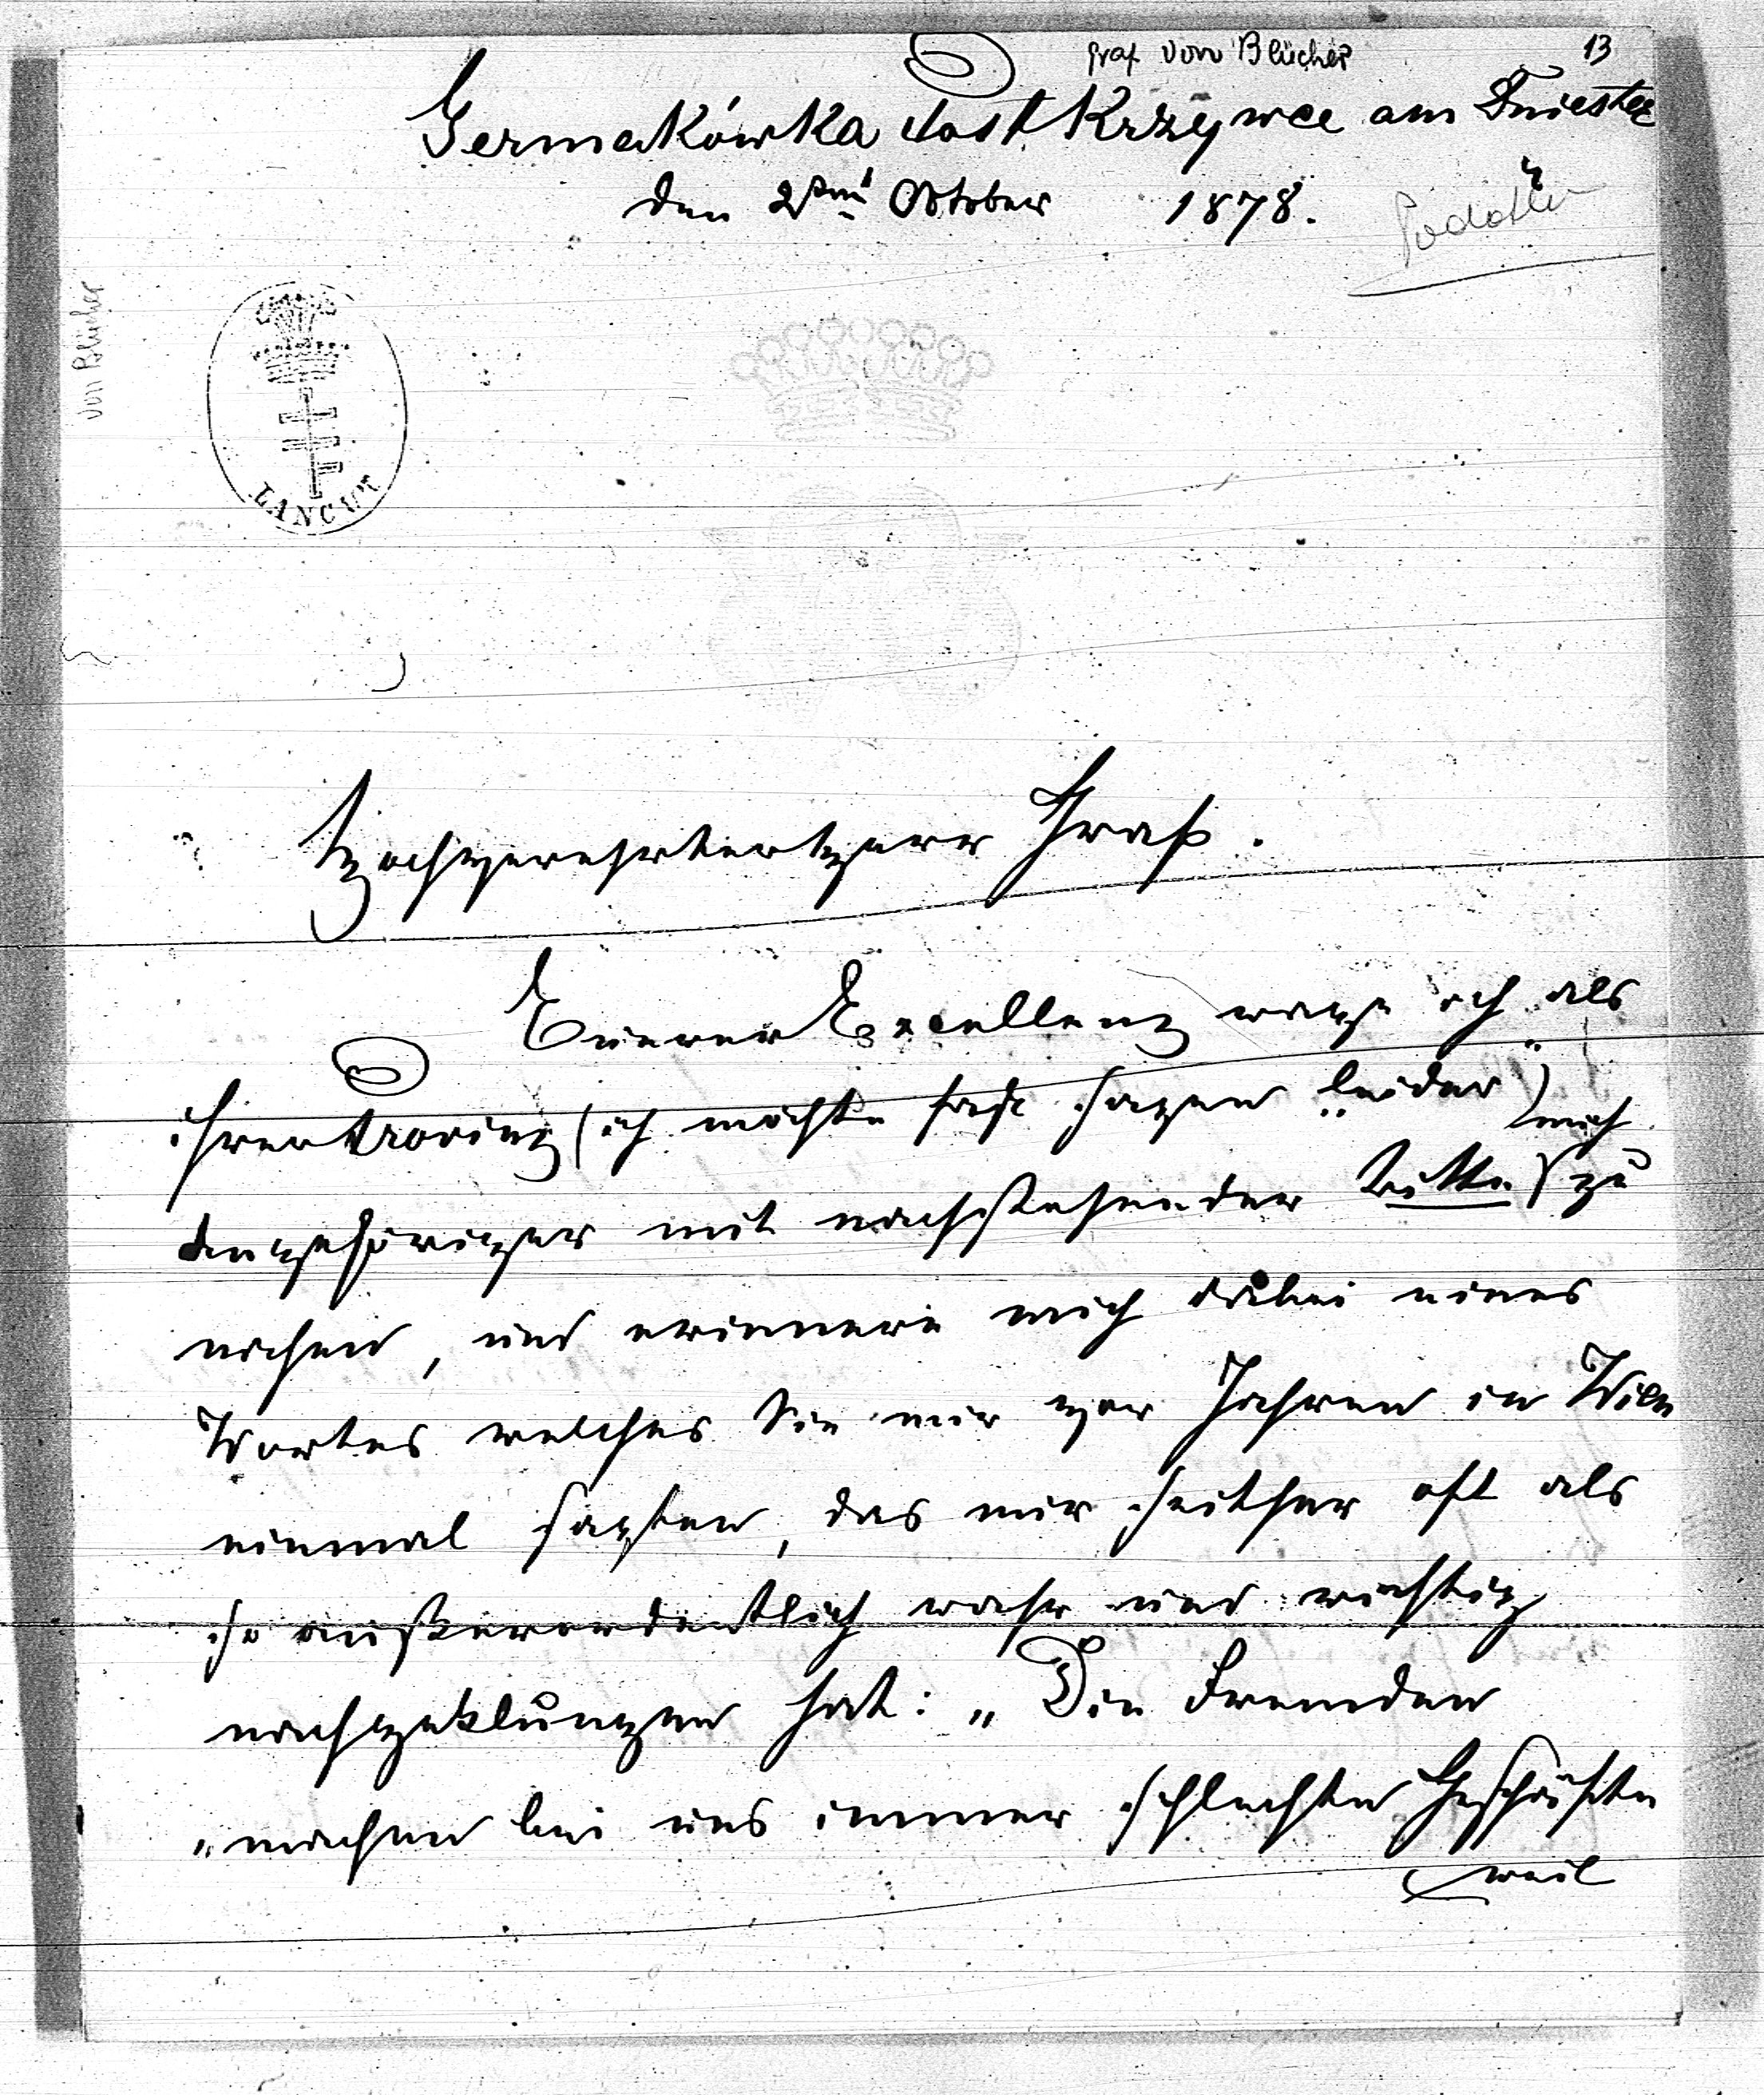 Graf von Blücher 13
Germakówka Post Krzywce am Dniester
den 2ten Oktober 1878.
von Blücher
LANCUT
Hochverehrter Herr Graf.
Euerer Excellenz wage ich als
ihrer Provinz (ich möchte fast sagen „leider")
Angehöriger mit nachstehender Bitte mich zu
nahen, und erinnere mich dabei eines
Wortes welches Sie mir vor Jahren in Wien
einmal sagten, das mir seither oft als
so außerordentlich wahr und richtig
nachgeklungen hat: „Die Fremden
„machen bei uns immer schlechte Geschäfte
weil